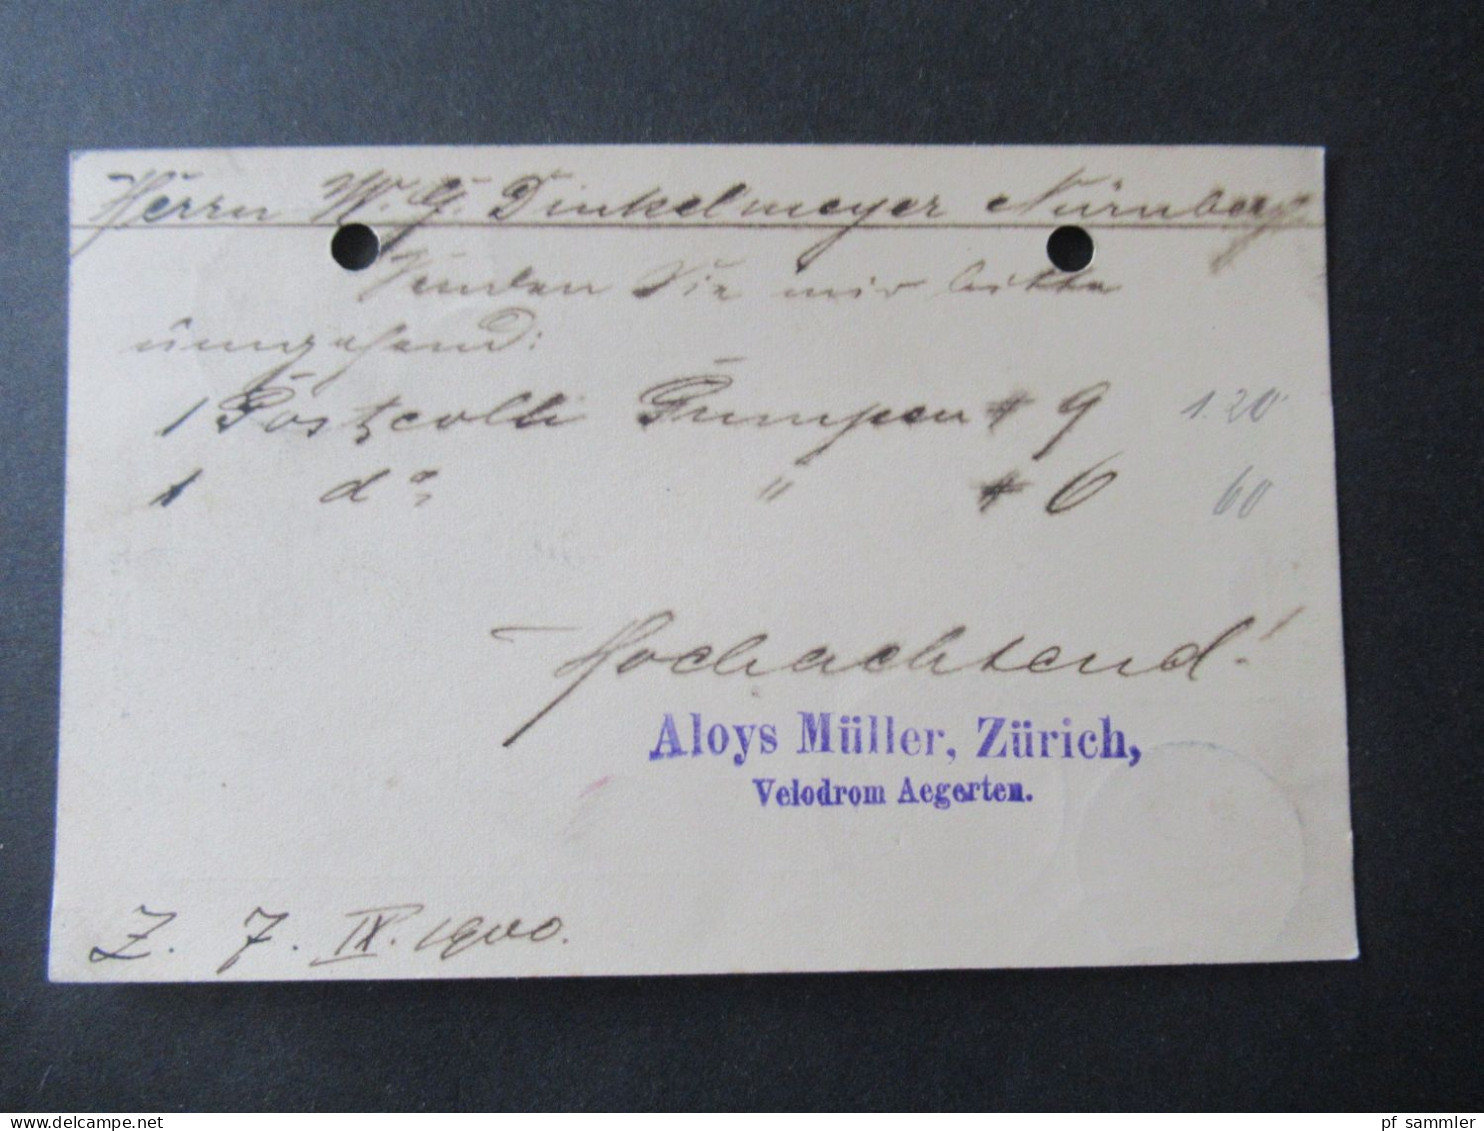 Herrn W. G. Dinkelmeyer Nürnberg
Senden Sie mir bitte
umgehend:
1 Postcolli Pumpen # 9 1.20
1 do " # 6 60
Hochachtend!
Aloys Müller, Zürich,
Velodrom Aegerten.
Z. 7. IX. 1900.
pf sammler
delcampe.net